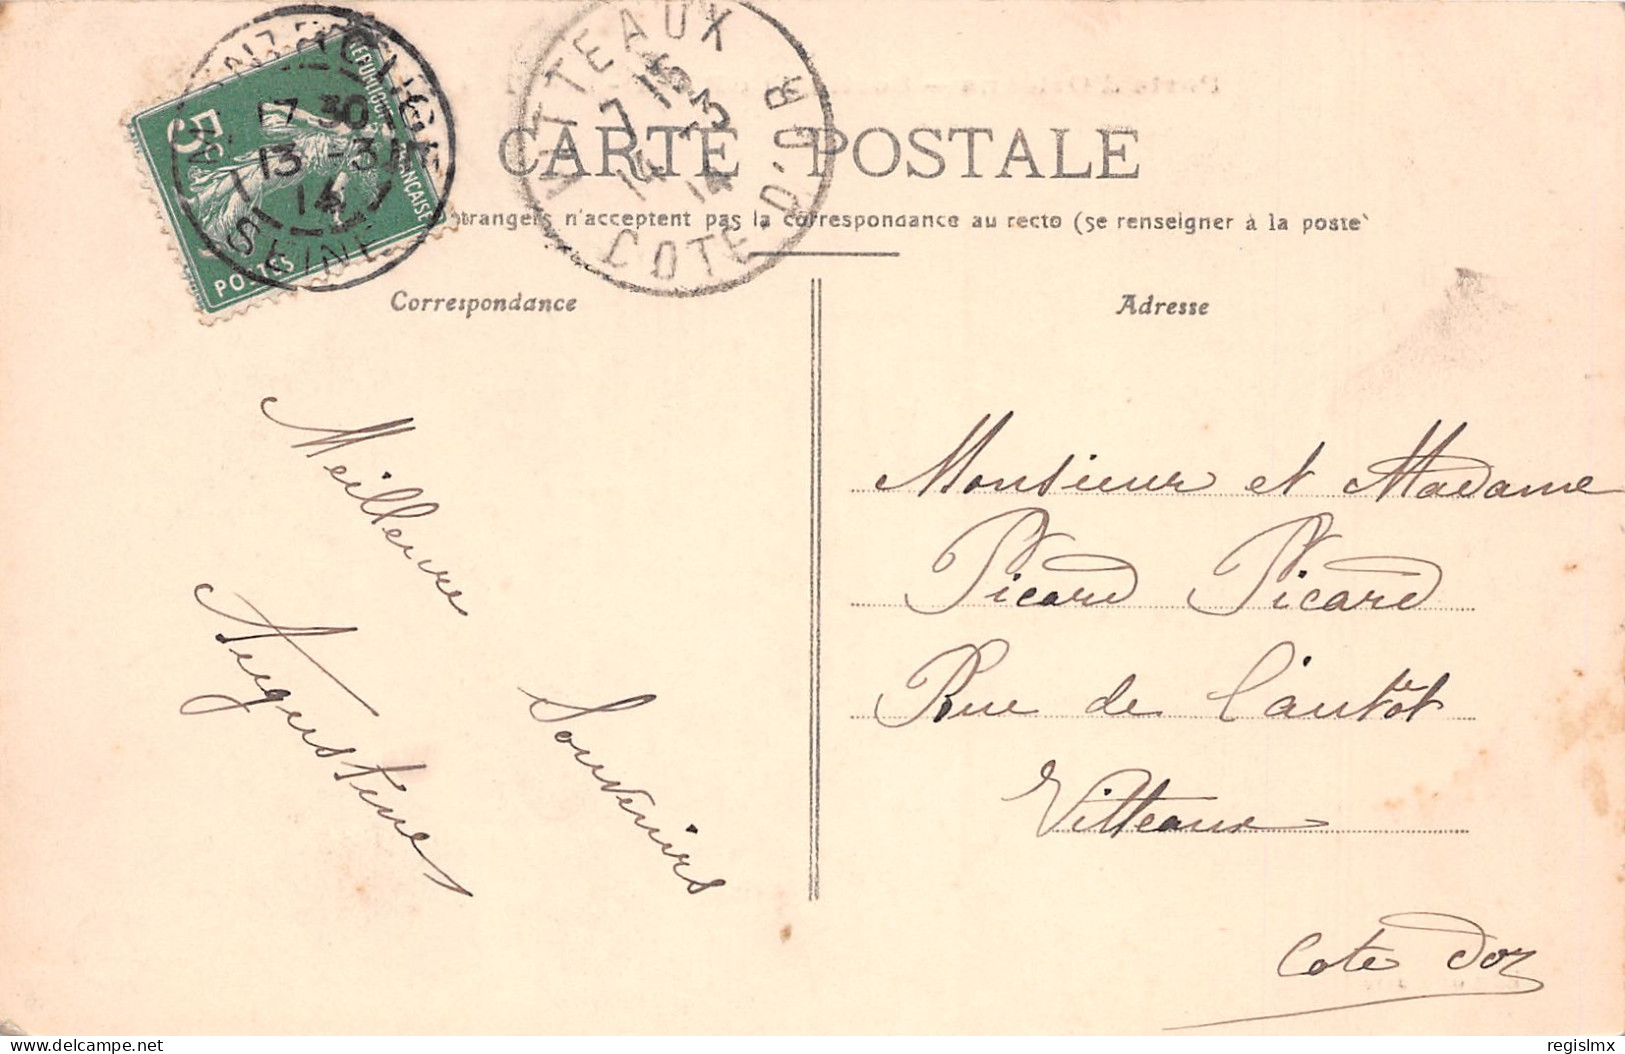 RÉPUBLIQUE FRANÇAISE
5c
POSTES
17 30
13 - 3
14
SEINE
VITTEAUX
7 15
14 - 3
14
COTE D'OR
CARTE POSTALE
étrangers n'acceptent pas la correspondance au recto (Se renseigner à la poste
Correspondance
Adresse
Meilleure
Souvenirs
Augustine
Monsieur et Madame
Picard Picard
Rue de
Vitteaux
Cote Dor
delcampe.net
regislmx